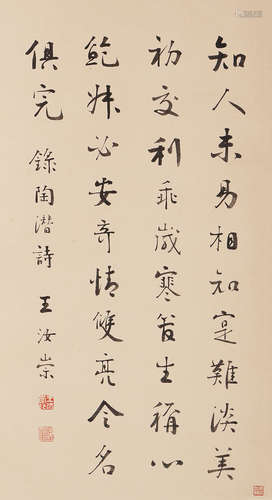 知人未易相知寔難淡美
初交利乖歲寒管生稱心
鮑叔必安奇情雙亮令名
俱完 錄陶潛詩 王汝崇